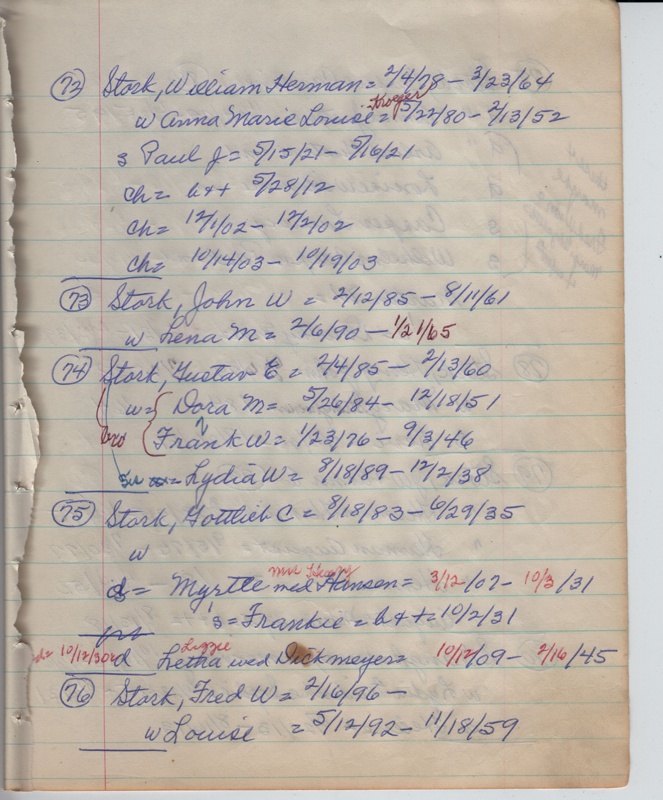 72 Stork, William Herman = 2/4/78 - 3/23/64
Kroeger
w Anna Marie Louise = 5/22/80 - 2/13/52
s Paul J = 5/15/21 - 5/16/21
ch = b + t 5/28/12
ch = 12/1/02 - 12/2/02
ch = 10/14/03 - 10/19/03
73 Stork, John W = 2/12/85 - 8/11/61
w Lena M = 2/6/90 - 1/21/65
74 Stork, Gustav E = 2/4/85 - 2/13/60
w = Dora M = 5/26/84 - 12/18/51
bro Frank W = 1/23/76 - 9/3/46
= Lydia W = 8/18/89 - 12/2/38
75 Stork, Gottlieb C = 8/18/83 - 6/29/35
w
d = Myrtle wed Hansen = 3/12/07 - 10/3/31
s = Frankie = b + t = 10/2/31
Lizzie
d = 10/12/30 d Letha wed Dickmeyer = 10/12/09 - 2/16/45
76 Stork, Fred W = 2/16/96 -
w Louise = 5/12/92 - 11/18/59